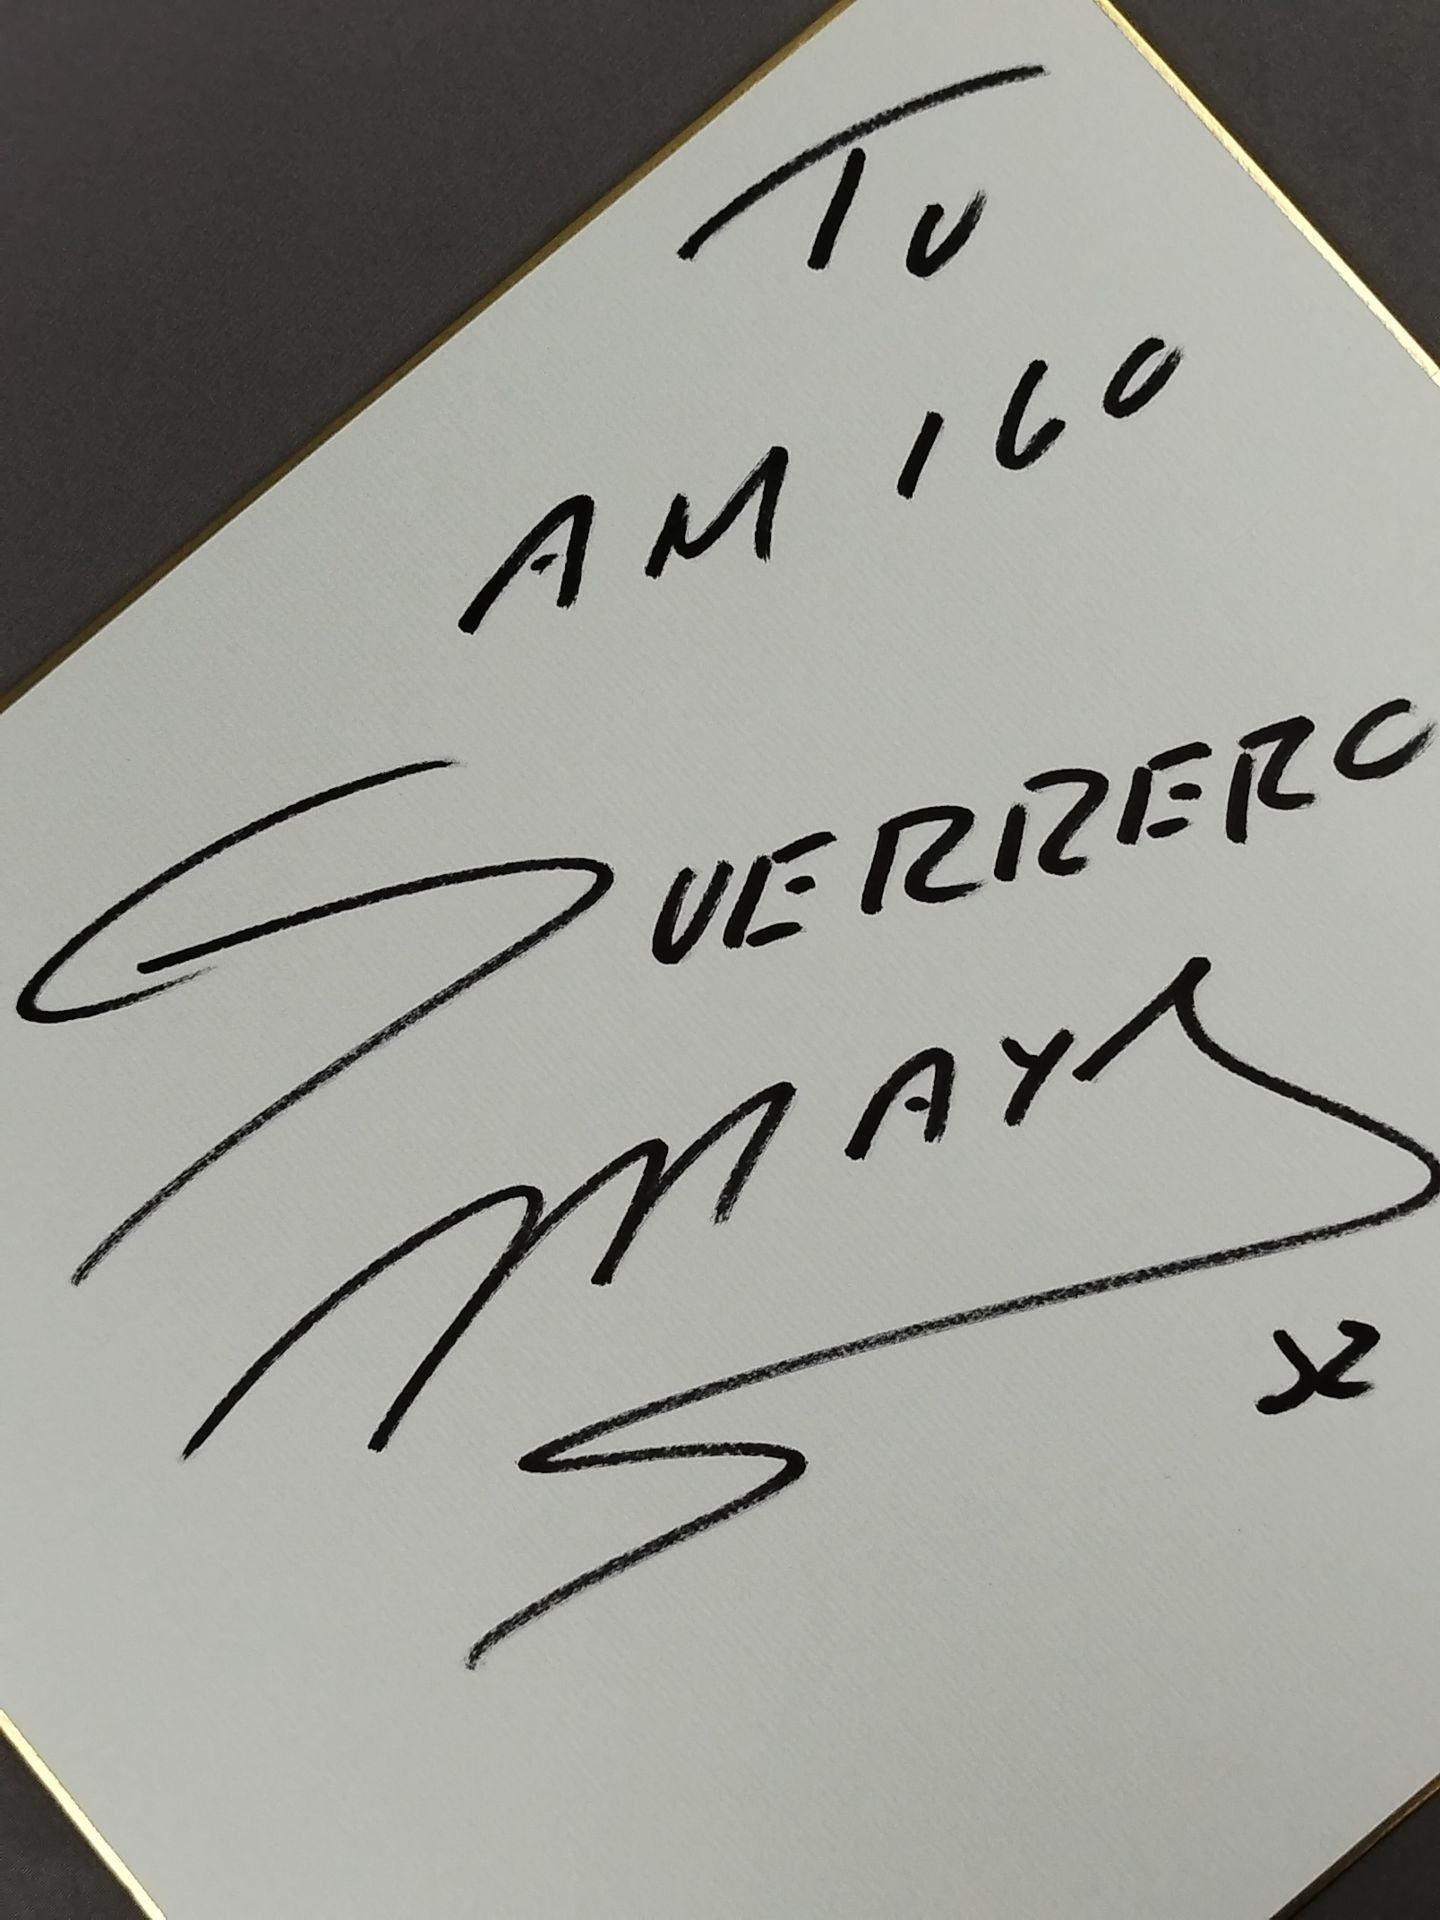 TU
AMIGO
GUERRERO
MAYA